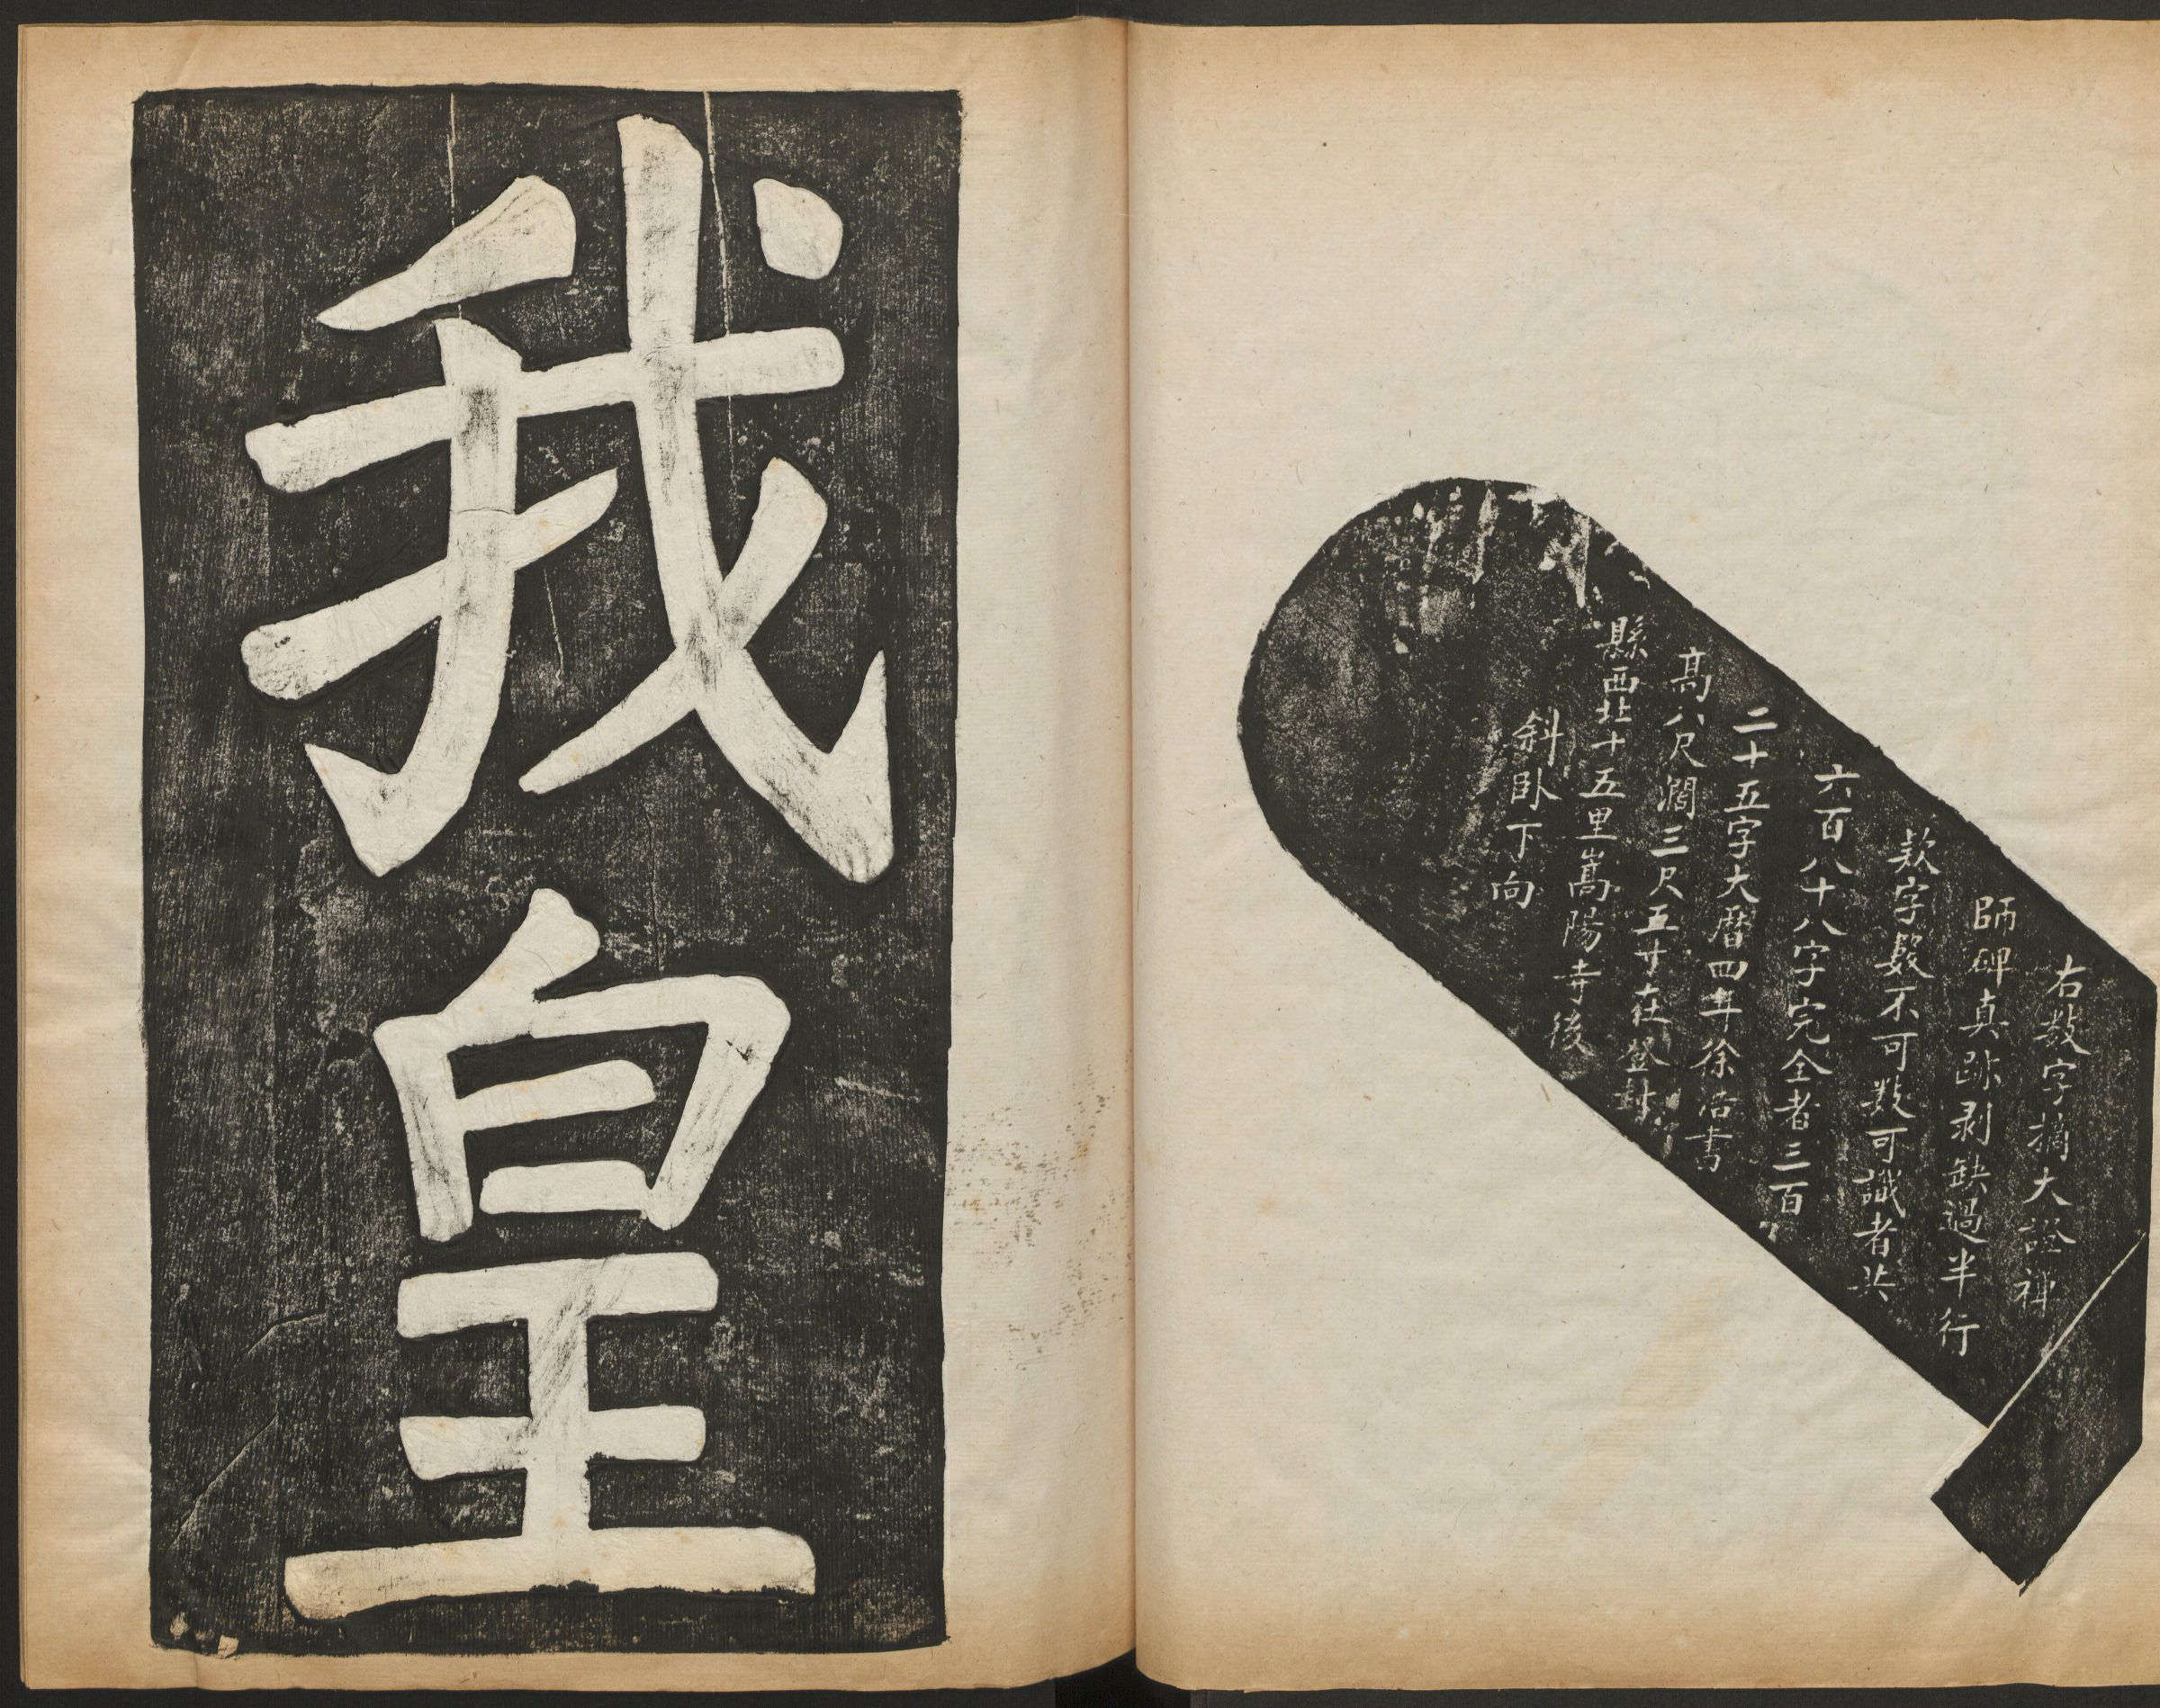 右數字摘大證禪
師碑真跡剥缺過半行
款字數不可數可識者共
六百八十八字完全者三百
二十五字大曆四年徐浩書
高八尺濶三尺五寸在登封
縣西北十五里嵩陽寺後
斜卧下向
我皇